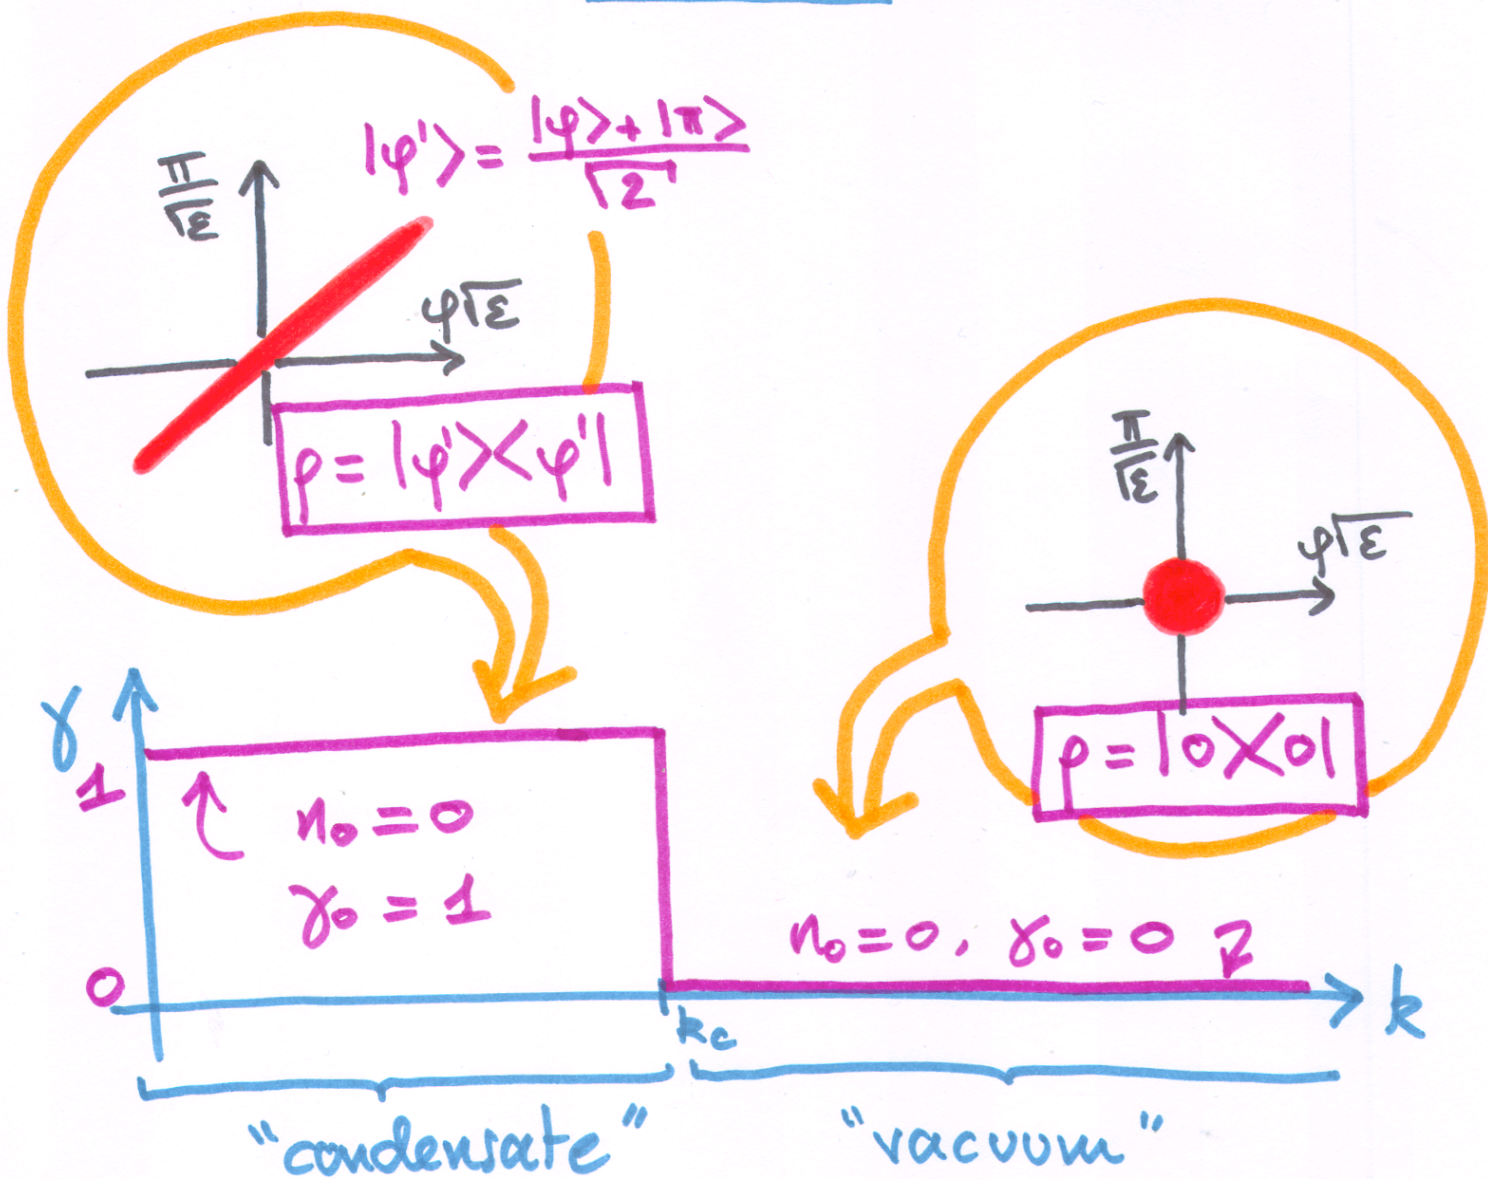 |φ'> = |φ> + |π> / √2
π/√ε
φ√ε
ρ = |φ'><φ'|
π/√ε
φ√ε
ρ = |0><0|
γ
1
n₀ = 0
γ₀ = 1
0
n₀ = 0, γ₀ = 0
k
k_c
"condensate" "vacuum"